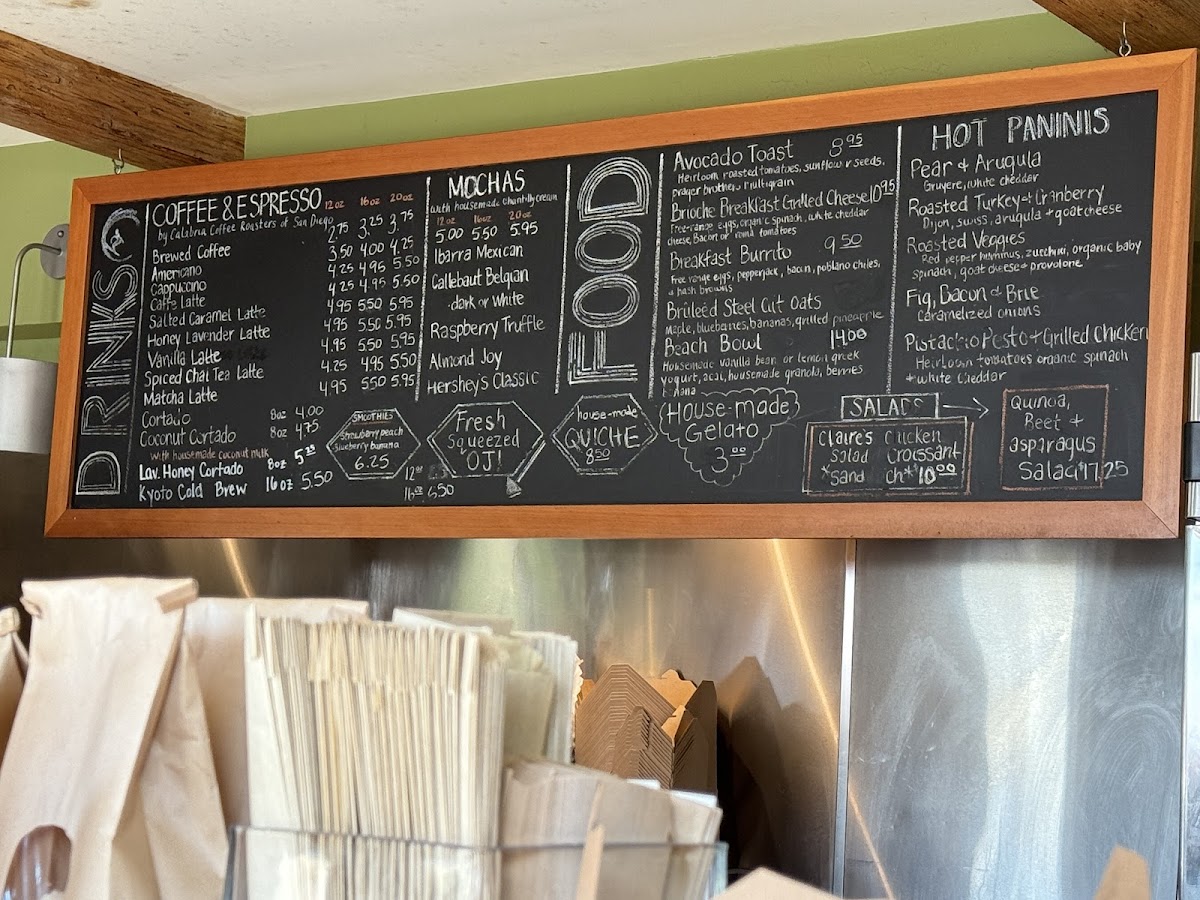 DRINKS
COFFEE & ESPRESSO 12 oz 16 oz 20 oz
by Calabria Coffee Roasters of San Diego
Brewed Coffee 2.75 3.25 3.75
Americano 3.50 4.00 4.25
Cappuccino 4.25 4.95 5.50
Caffe Latte 4.25 4.95 5.50
Salted Caramel Latte 4.95 5.50 5.95
Honey Lavender Latte 4.95 5.50 5.95
Vanilla Latte 4.95 5.50 5.95
Spiced Chai Tea Latte 4.25 4.95 5.50
Matcha Latte 4.95 5.50 5.95
Cortado 8oz 4.00
Coconut Cortado 8oz 4.75
with housemade coconut milk
Lav. Honey Cortado 8oz 5.25
Kyoto Cold Brew 16oz 5.50
MOCHAS
with housemade chantilly cream
12 oz 16oz 20 oz
5.00 5.50 5.95
Ibarra Mexican
Callebaut Belgian
-dark or White
Raspberry Truffle
Almond Joy
Hershey's Classic
SMOOTHIES
Strawberry peach
blueberry banana
6.25
Fresh
Squeezed
OJ!
12oz
6.50
FOOD
Avocado Toast 8.95
Heirloom roasted tomatoes, sunflower seeds,
prager brothers multigrain
Brioche Breakfast Grilled Cheese 10.95
Free-range eggs, organic spinach, white cheddar
cheese, Bacon or tomatoes
Breakfast Burrito 9.50
Free range eggs, pepperjack, bacon, poblano chiles,
+ hash browns
Brûléed Steel Cut Oats
Maple, blueberries, bananas, grilled pineapple
Beach Bowl 14.00
Housemade vanilla bean or lemon greek
yogurt, acai, housemade granola, berries
house-made
QUICHE
8.50
House-made
Gelato
3.00
HOT PANINIS
Pear & Arugula
Gruyere, white cheddar
Roasted Turkey + Cranberry
Dijon, swiss, arugula + goat cheese
Roasted Veggies
Red pepper hummus, zucchini, organic baby
spinach, goat cheese + provolone
Fig, Bacon & Brie
Caramelized onions
Pistachio Pesto + Grilled Chicken
Heirloom tomatoes organic spinach
+ white cheddar
SALADS
Claire's Chicken
Salad Croissant
*Sand ch* 10.00
Quinoa,
Beet +
asparagus
Salad